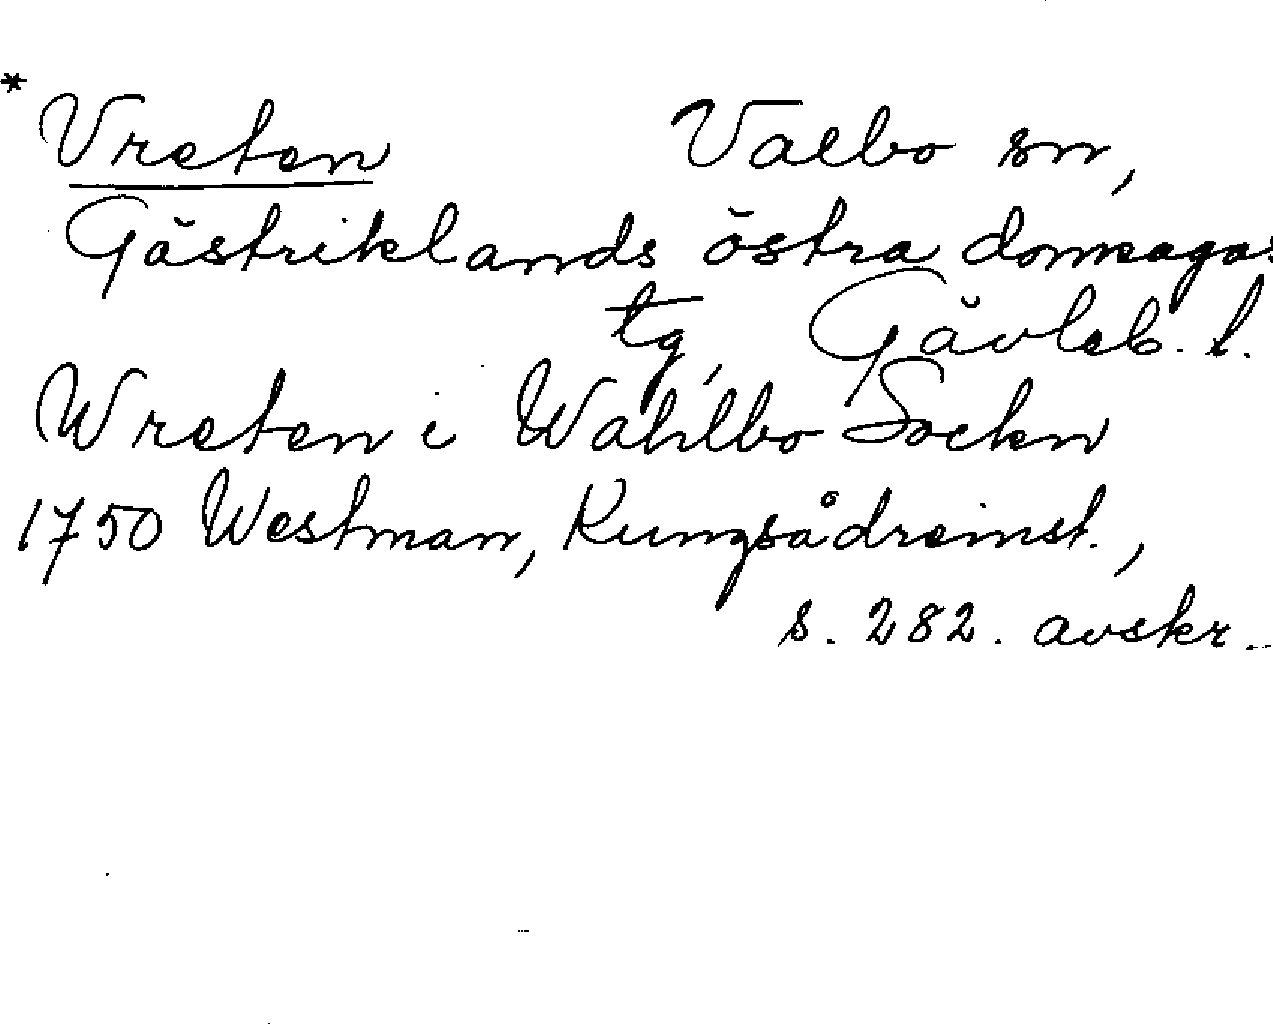 * Vreten Valbo sn,
Gästriklands östra domsagas
tg, Gävleb. l.
Wreten i Wahlbo Sockn
1750 Westman, Kungsådreinst.,
s. 282. avskr.